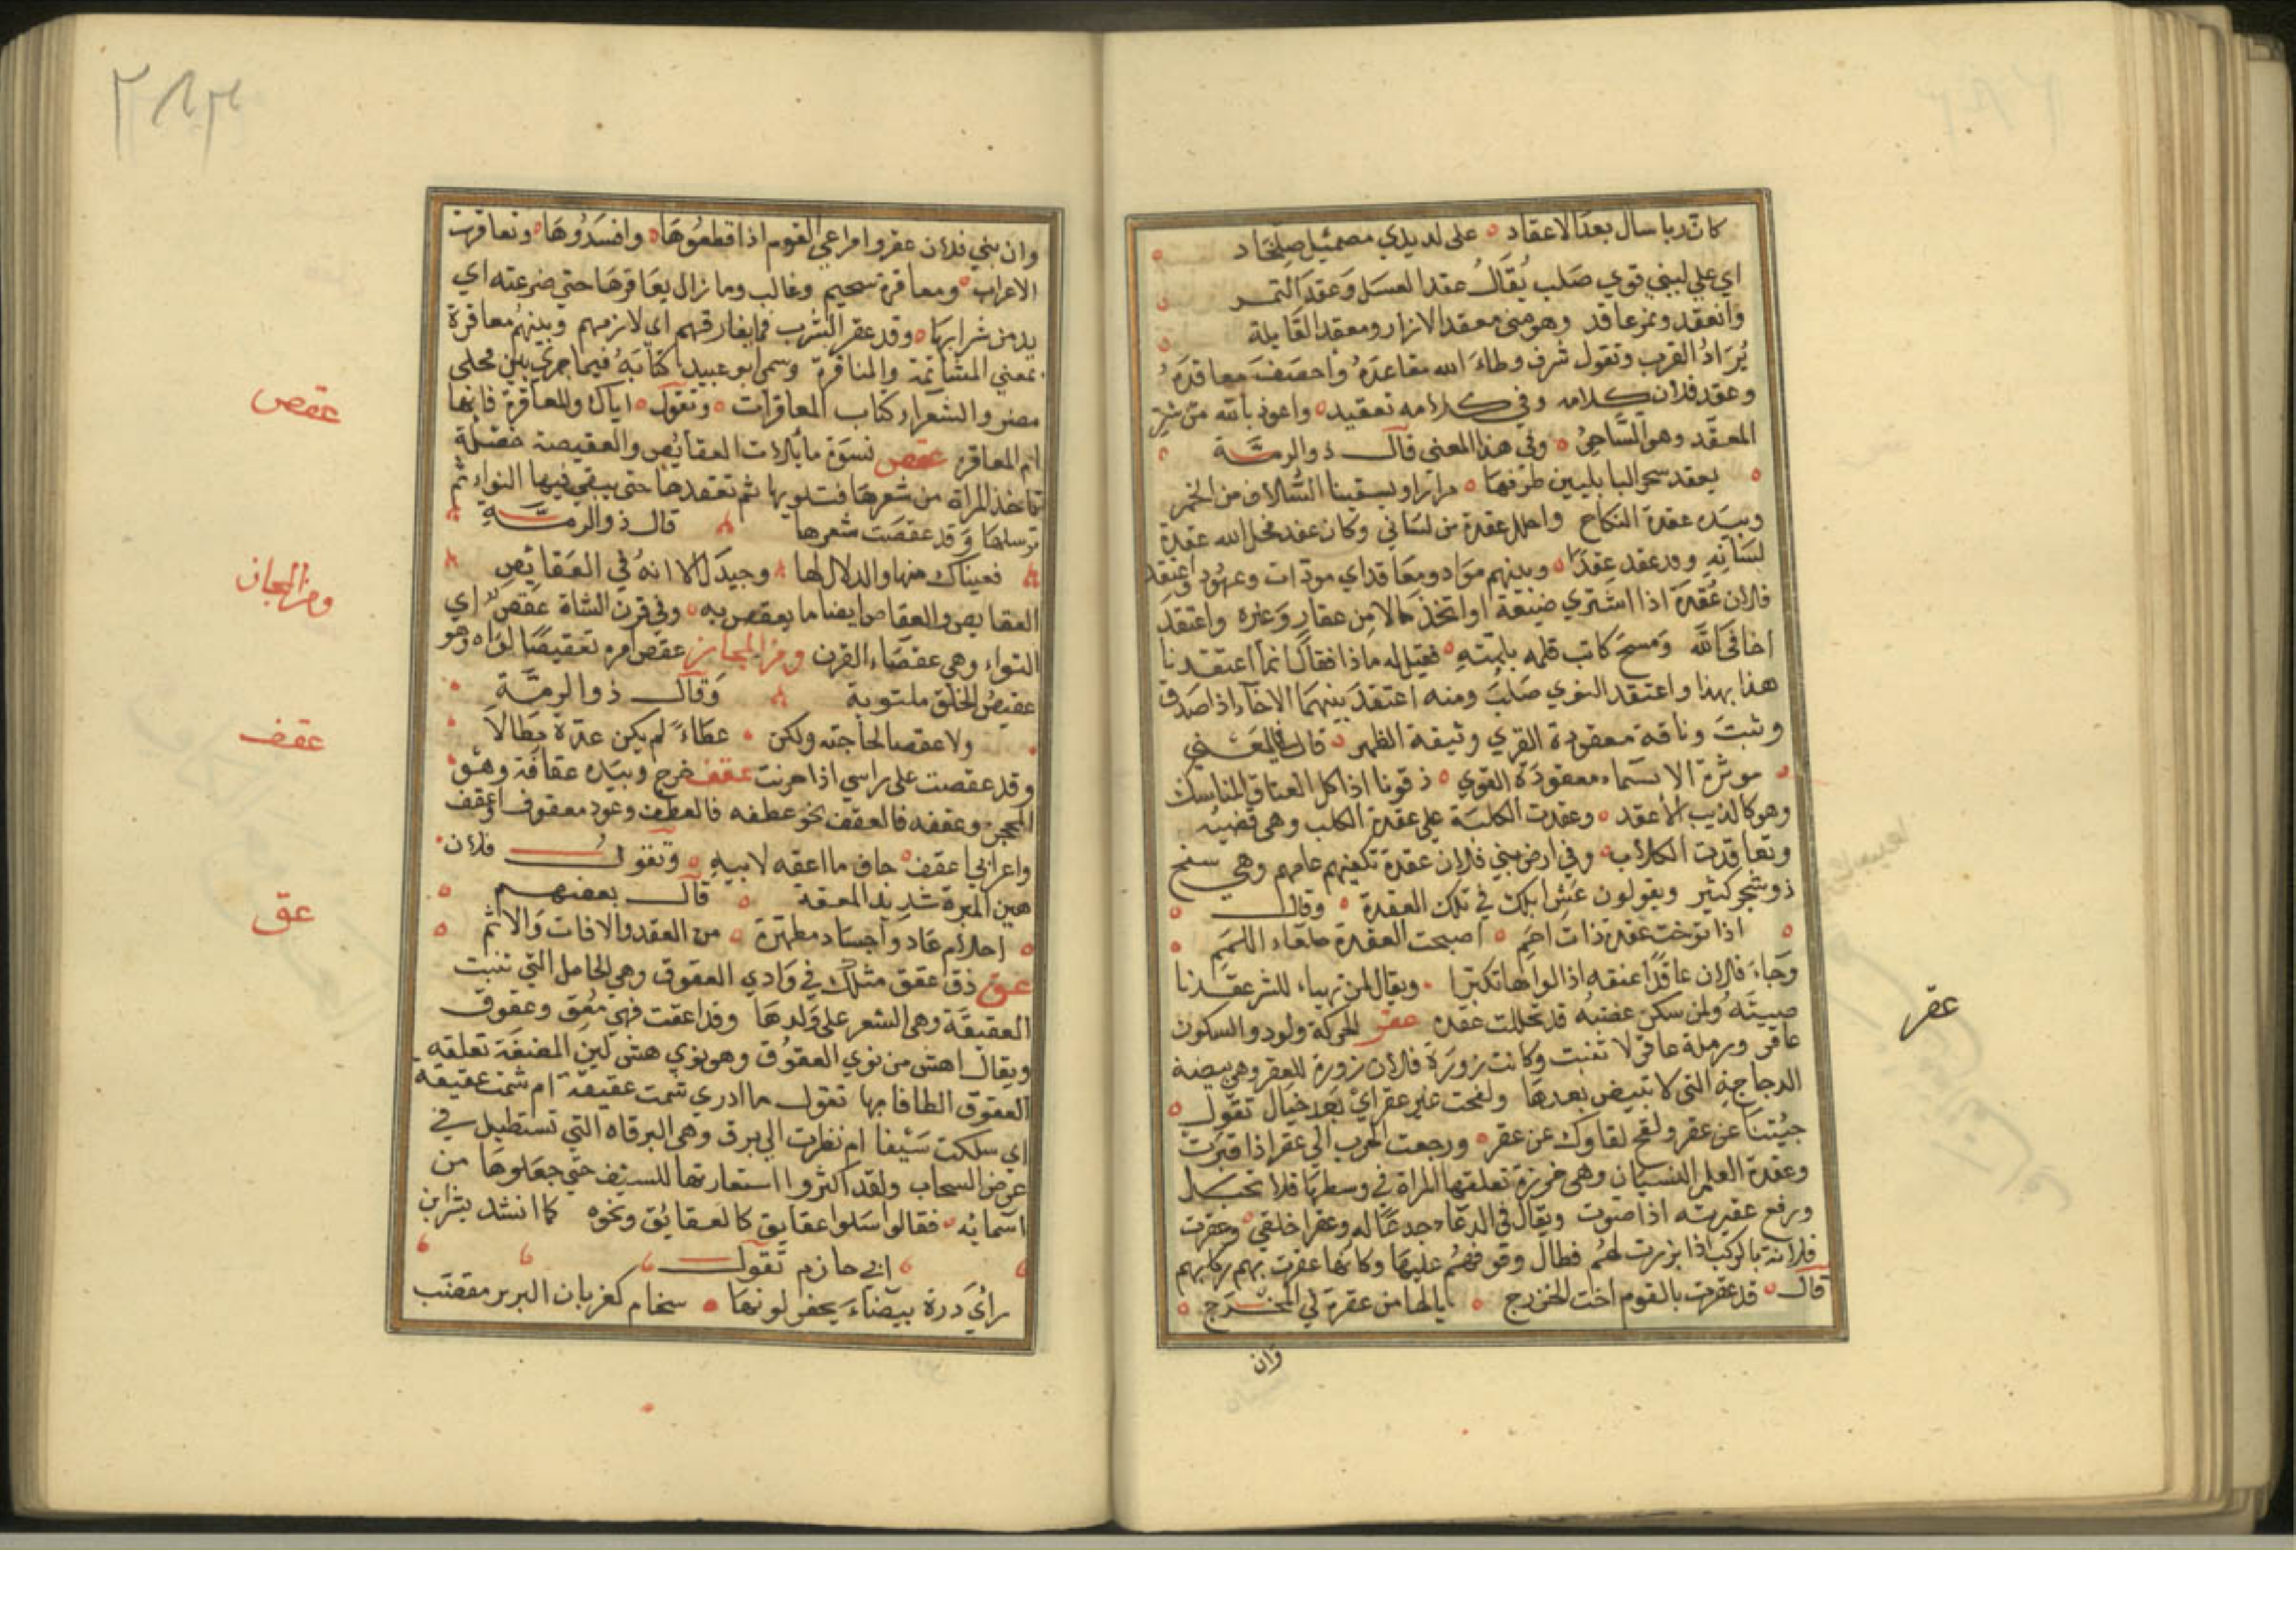 كان ربا سال بعد الاعقاد على لديدي مصمئل صلخاد
اي على لبيني قوي صلب يقال عقد العسل وعقد التمر
وانعقد وتمر عاقد وهو مني معقد الازار ومعقد القابلة
يراد القرب وتقول شرف وطاء الله مقاعده واحصف معاقده
وعقد فلان كلامه وفي كلامه تعقيد واعوذ بالله من شر
المعقد وهو الساحر وفي هذا المعنى قال ذو الرمة
يعقد سحر البابليين طرفها مرارا ويسقينا السلاف من الخمر
وبيده عقدة النكاح واحلل عقدة من لساني وكان عقد فحل الله عقدة
لسانه وقد عقد عقدا وبينهم مواد ومعاقد اي مودات وعهود واعتقد
فلان عقدة اذا اشتري ضيعة او اتخذ مالا من عقار وغيره واعتقد
اخا في الله ومسح كاتب قلمه بلمته فقيل له ماذا فقال انما اعتقدنا
هذا بهذا واعتقد النوي صلب ومنه اعتقد بينهما الاخاء اذا صدق
وثبت وناقة معقودة القري وثيقة الظهر قال
موثرة الانساء معقودة القوي ذقونا اذا كل العتاق المناسك
وهو كالذيب الاعقد وعقدت الكلبة على عقدة الكلب وهي قضيبه
وتعاقدت الكلاب وفي ارض بني فلان عقدة تكفيهم عامهم وهي
ذو شجر كثير ويقولون عش ابلك في تلك العقدة وقال
اذا عقدة ذات اجم اصبحت العقدة صلعاء اللمم
وجاء فلان عاقدا عنقه اذا لواها تكبرا ويقال لمن تهياء للشر عقد
ولمن سكن غضبه قد تحللت عقده عقر الحركة ولود والسكون
عاقر ورملة عاقر لا تنبت وكانت زورة فلان زورة للعقر وهي بيضة
الدجاجة التي لا تبيض بعدها ولقحت عن عقر اي بعد حيال تقول
جئتنا عن عقر ولقح لقاوك عن عقر ورجعت الحرب الى عقر اذا فترت
وعقرة العلم النسيان وهي خرزة تعلقها المراة في وسطها فلا تحبل
ورفع عقيرته اذا صوت ويقال في الدعاء جدعا له وعقرا حلقي وعقرت
فلانة بالركب اذا برزت لهم فطال وقوفهم عليها وكانها عقرت بهم ركابهم
قال قد عقرت بالقوم اخت الخزرج يالها من عقرة لي
وان
عقر
وان بني فلان عقروا مراعي القوم اذا قطعوها وافسدوها وتعاقرت
الاعراب ومعاقرة سحيم وغالب وما زال يعاقرها حتى صرعته اي
يدمن شرابها وقد عقر الشرب فما يفارقهم اي لازمهم وبينهم معاقرة
بمعني المشاتمة والمنافرة وسمى ابو عبيد كتابه فيما جري بين فحلى
مضر والشعراء كتاب المعاقرات وتقول اياك والمعاقرة فانها
ام المعاقر عقص نسوة مايلات العقايص والعقيصة خصلة
تاخذ المراة من شعرها فتلويها ثم تعقدها حتى يبقى فيها التواء ثم
ترسلها وقد عقصت شعرها قال ذو الرمة
فعيناك منها والدلال لها وجيدك الا انه في العقائص
العقايص والعقاص ايضا ما يعقص به وفي قرن الشاة عقص اي
التواء وهي عقصاء القرن ومن المجاز عقص امره تعقيصا لواه وهو
عقيص الخلق ملتوية وقال ذو الرمة
ولا عقصا لحاجته ولكن عطاء لم يكن عدة مطالا
وقد عقصت على راسي اذا حرنت عقف خرج وبيده عقافة وهي
المحجن وعقفه فانعقف نحو عطفه فانعطف وعود معقوف اعقف
واعرابي اعقف جاف ما اعقه لابيه وتقول فلان
هين المبرة شديد المعقة قال بعضهم
احلام عاد واجساد مطهرة من العقد والافات والاثم
عق ذق عقق مثلك في وادي العقوق وهي الحامل التي تنبت
العقيقة وهي الشعر على ولدها وقد اعقت فهي معق وعقوق
ويقال اهش من نوي العقوق وهو نوي هش لين المضغة تعلقه
العقوق الطافا بها تقول ما ادري شمت عقيقة ام شمت عقيقه
اي سلكت سيفا ام نظرت الى برق وهي البرقاه التي تستطيل في
عرض السحاب ولقد اكثروا استعارتها للسيف حتى جعلوها من
اسمائه فقالوا سلوا عقايق كالعقائق ونحوه كما انشد بشر بن
ابي حازم تقول
راي درة بيضاء يحفر لونها سخام كغربان البرير مقصب
عقص
ومن المجاز
عقف
عق